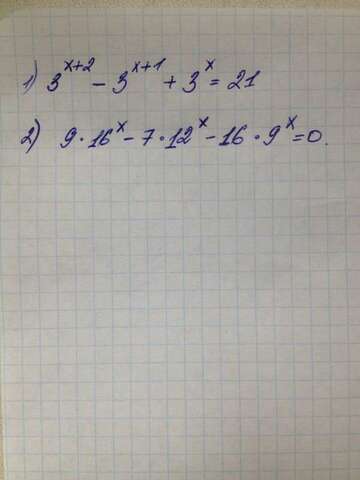 1) 3^{x+2} - 3^{x+1} + 3^x = 21
2) 9 · 16^x - 7 · 12^x - 16 · 9^x = 0.